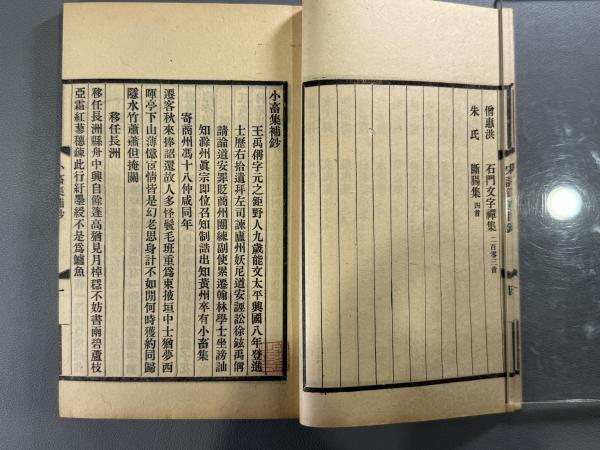 僧惠洪　石門文字禪集　一百零三首
朱氏　斷腸集　四首
小畜集補鈔
王禹偁字元之鉅野人九歲能文太平興國八年登進
士歷右拾遺拜左司諫廬州妖尼道安誣訟徐鉉禹偁
請論道安罪貶商州團練副使累遷翰林學士坐謗訕
知滁州眞宗即位召知制誥出知黃州卒有小畜集
寄商州馮十八仲咸同年
遷客秋來捧詔還故人多怪鬢毛班重爲東掖垣中士猶夢西
暉亭下山薄憶宦情皆是幻老思身計不如閒何時獲約同歸
隱水竹蕭蕭但掩關
移任長洲
移任長洲縣舟中興自餘蓬高猶見月棹穩不妨書雨碧蘆枝
亞霜紅蓼穗疎此行紅墨綬不是爲鱸魚
小畜集補鈔　一